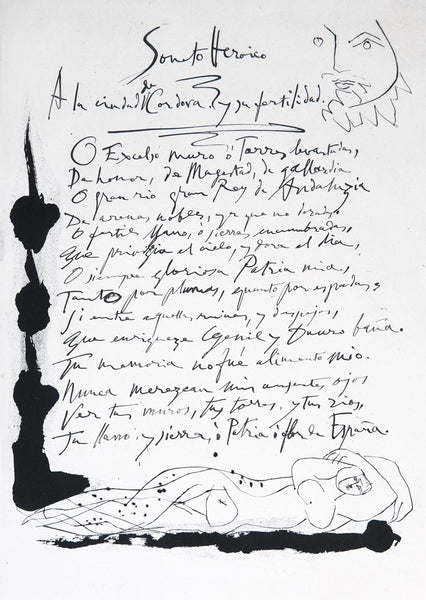 Soneto Heroico
A la ciudad de Cordova y su fertilidad.
O Excelso muro ó Torres levantadas,
De honor, de Magestad, de gallardia
O gran rio gran Rey de Andaluzia
De arenas nobles, ya que no doradas.
O fertil llano, ó sierras encumbradas,
Que privilegia el cielo, y dora el dia,
O siempre gloriosa Patria mia,
Tanto por plumas, quanto por espadas,
Si entre aquellas ruinas, y despojos,
Que enriqueze Genil y Dauro baña.
Tu memoria no fué alimento mio.
Nunca merezcan mis ausentes ojos
Ver tus muros, tus torres, y tus rios,
Tu llano y sierra, ó Patria ó flor de España.